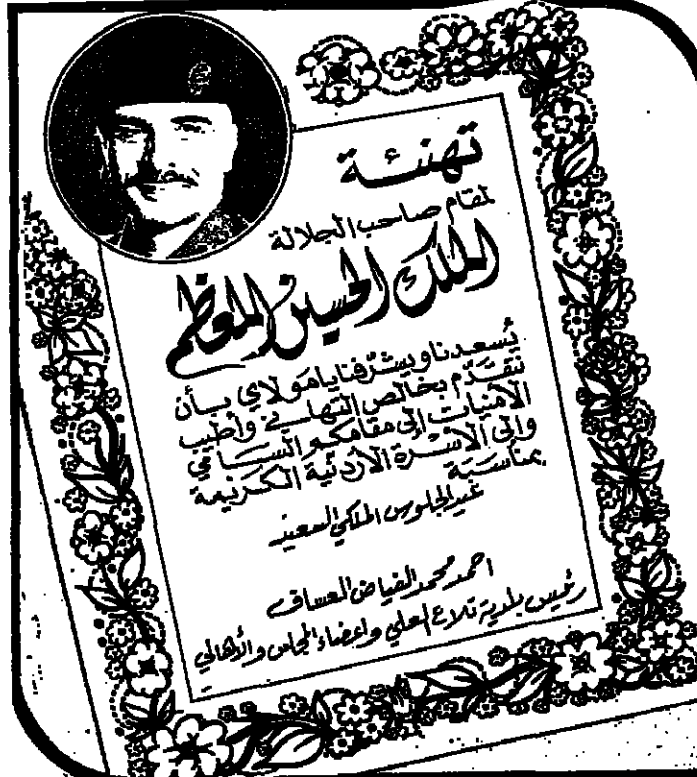 تهنئة
لمقام صاحب الجلالة
الملك الحسين المعظم
يُسعدنا ويشرّفنا يا مولاي بأن
نتقدّم بخالص التهاني وأطيب
الأمنيات إلى مقامكم السامي
وإلى الأسرة الأردنية الكريمة
بمناسبة
عيد الجلوس الملكي السعيد
احمد محمد الفياض العساف
رئيس بلدية تلاع العلي واعضاء المجلس والأهالي